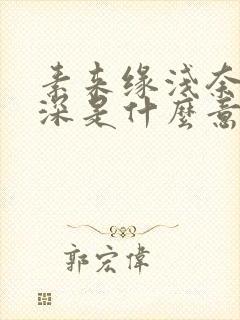 素来缘浅奈
深是什麼意
郭宏偉